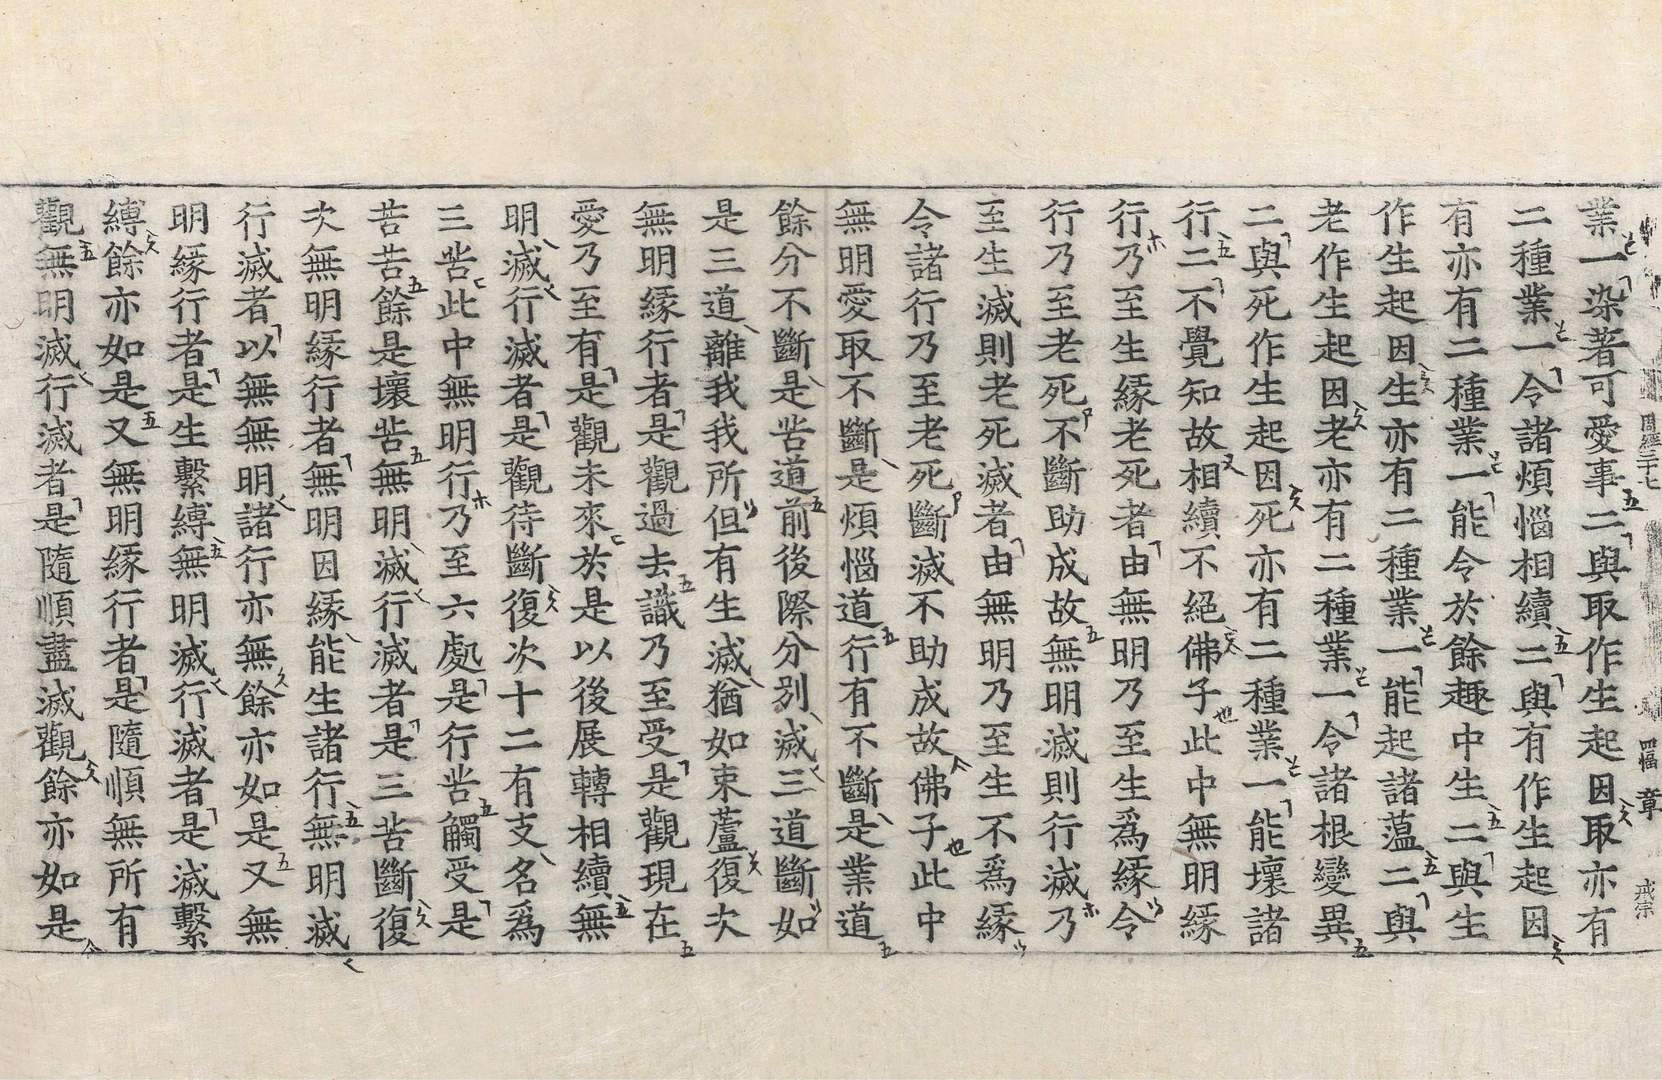 周經三十七 四幅 章 戒宗
業一染著可愛事二與取作生起因取亦有
二種業一令諸煩惱相續二與有作生起因
有亦有二種業一能令於餘趣中生二與生
作生起因生亦有二種業一能起諸蘊二與
老作生起因老亦有二種業一令諸根變異
二與死作生起因死亦有二種業一能壞諸
行二不覺知故相續不絕佛子此中無明緣
行乃至生緣老死者由無明乃至生爲緣令
行乃至老死不斷助成故無明滅則行滅乃
至生滅則老死滅者由無明乃至生不爲緣
令諸行乃至老死斷滅不助成故佛子此中
無明愛取不斷是煩惱道行有不斷是業道
餘分不斷是苦道前後際分別滅三道斷如
是三道離我我所但有生滅猶如束蘆復次
無明緣行者是觀過去識乃至受是觀現在
愛乃至有是觀未來於是以後展轉相續無
明滅行滅者是觀待斷復次十二有支名爲
三苦此中無明行乃至六處是行苦觸受是
苦苦餘是壞苦無明滅行滅者是三苦斷復
次無明緣行者無明因緣能生諸行無明滅
行滅者以無無明諸行亦無餘亦如是又無
明緣行者是生繫縛無明滅行滅者是滅繫
縛餘亦如是又無明緣行者是隨順無所有
觀無明滅行滅者是隨順盡滅觀餘亦如是